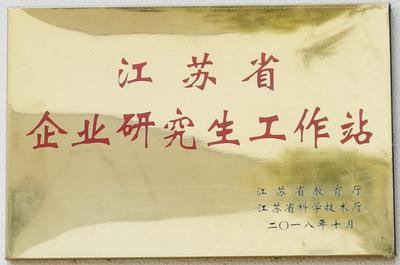 江苏省
企业研究生工作站
江苏省教育厅
江苏省科学技术厅
二〇一八年十月